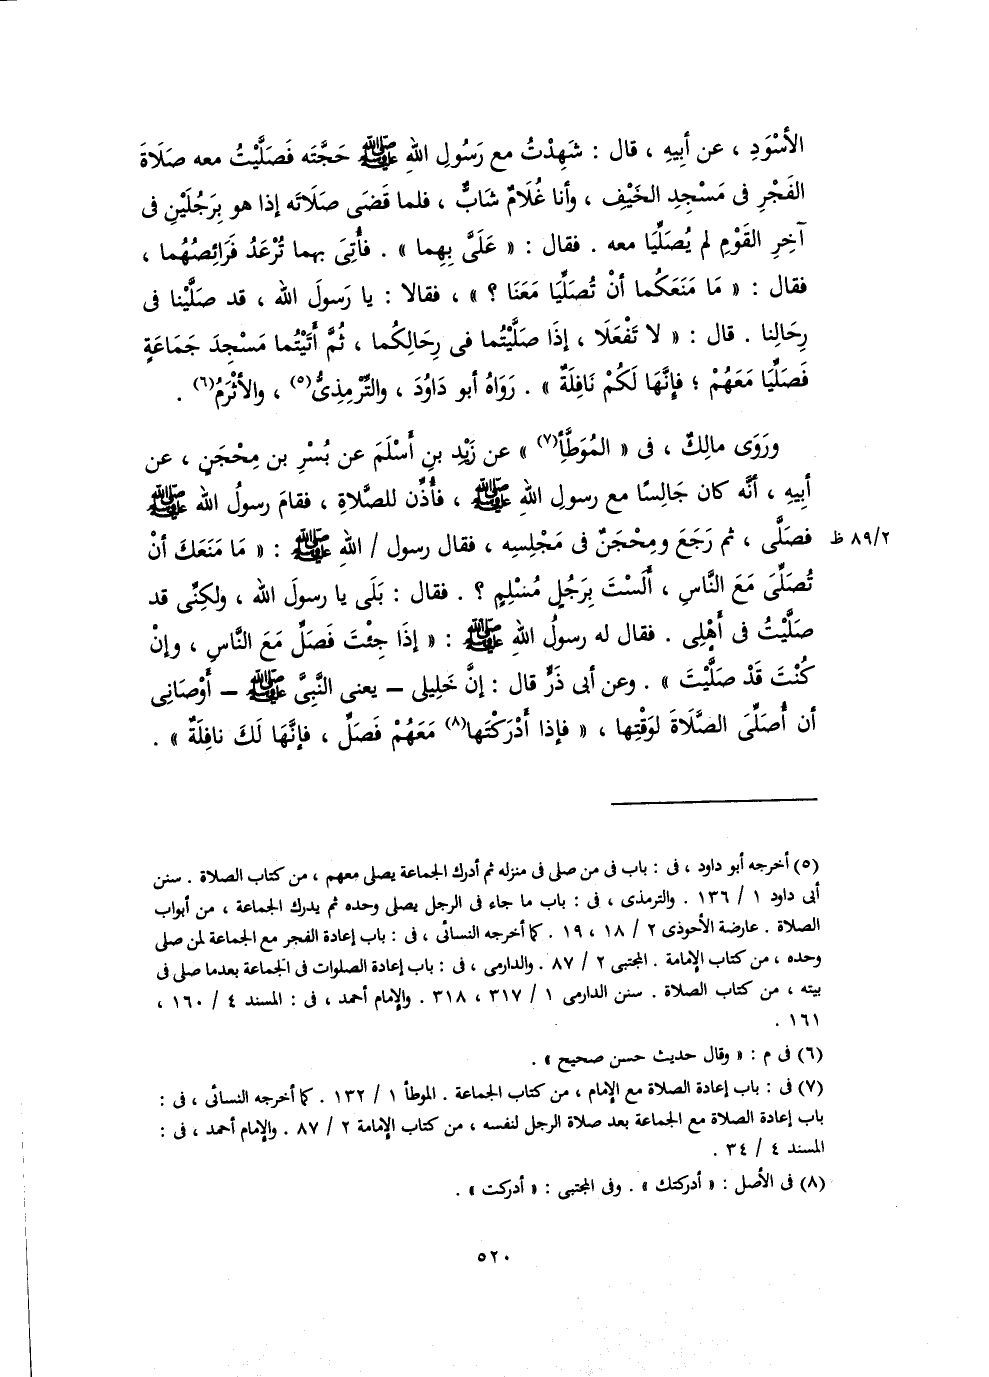 الأَسْوَدِ ، عن أبِيهِ ، قال : شَهِدْتُ مع رَسُولِ اللهِ ﷺ حَجَّتَه فَصَلَّيْتُ معه صَلَاةَ
الفَجْرِ فى مَسْجِدِ الخَيْفِ ، وأنا غُلَامٌ شَابٌّ ، فلما قَضَى صَلَاتَه إذا هو بِرَجُلَيْنِ فى
آخِرِ القَوْمِ لم يُصَلِّيَا معه . فقال : « عَلَىَّ بِهِما » . فأُتِىَ بهما تُرْعَدُ فَرَائِصُهُما ،
فقال : « مَا مَنَعَكُما أنْ تُصَلِّيَا مَعَنَا ؟ » ، فقالا : يا رَسولَ الله ، قد صَلَّيْنا فى
رِحَالِنا . قال : « لا تَفْعَلَا ، إذَا صَلَّيْتُما فى رِحَالِكُما ، ثُمَّ أَتَيْتُما مَسْجِدَ جَمَاعَةٍ
فَصَلِّيَا مَعَهُمْ ؛ فإنَّهَا لَكُمْ نَافِلَةٌ » . رَوَاهُ أبو دَاوُدَ ، والتِّرْمِذِىُّ(٥) ، والأثْرَمُ(٦) .
ورَوَى مالِكٌ ، فى « المُوَطَّأ(٧) » عن زَيْدِ بنِ أَسْلَمَ عن بُسْرِ بن مِحْجَنٍ ، عن
أبِيهِ ، أنَّه كان جَالِسًا مع رسولِ اللهِ ﷺ ، فأُذِّن للصَّلاةِ ، فقامَ رسولُ الله ﷺ
فصَلَّى ، ثم رَجَعَ ومِحْجَنٌ فى مَجْلِسِه ، فقال رسول / اللهِ ﷺ : « مَا مَنَعَكَ أنْ ٨٩/٢ ظ
تُصَلِّىَ مَعَ النَّاسِ ، أَلَسْتَ بِرَجُلٍ مُسْلِمٍ ؟ . فقال : بَلَى يا رسولَ الله ، ولكِنِّى قد
صَلَّيْتُ فى أَهْلِى . فقال له رسولُ اللهِ ﷺ : « إذَا جِئْتَ فَصَلِّ مَعَ النَّاسِ ، وإنْ
كُنْتَ قَدْ صَلَّيْتَ » . وعن أبى ذَرٍّ قال : إنَّ خَلِيلى – يعنى النَّبِىَّ ﷺ – أَوْصَانِى
أن أُصَلِّىَ الصَّلَاةَ لوَقْتِها ، « فإذا أَدْرَكْتَها(٨) مَعَهُمْ فَصَلِّ ، فإنَّهَا لَكَ نافِلَةٌ » .
(٥) أخرجه أبو داود ، فى : باب فى من صلى فى منزله ثم أدرك الجماعة يصلى معهم ، من كتاب الصلاة . سنن
أبى داود ١ / ١٣٦ . والترمذى ، فى : باب ما جاء فى الرجل يصلى وحده ثم يدرك الجماعة ، من أبواب
الصلاة . عارضة الأحوذى ٢ / ١٨ ، ١٩ . كما أخرجه النسائى ، فى : باب إعادة الفجر مع الجماعة لمن صلى
وحده ، من كتاب الإمامة . المجتبى ٢ / ٨٧ . والدارمى ، فى : باب إعادة الصلوات فى الجماعة بعدما صلى فى
بيته ، من كتاب الصلاة . سنن الدارمى ١ / ٣١٧ ، ٣١٨ . والإمام أحمد ، فى : المسند ٤ / ١٦٠ ،
١٦١ .
(٦) فى م : « وقال حديث حسن صحيح » .
(٧) فى : باب إعادة الصلاة مع الإمام ، من كتاب الجماعة . الموطأ ١ / ١٣٢ . كما أخرجه النسائى ، فى :
باب إعادة الصلاة مع الجماعة بعد صلاة الرجل لنفسه ، من كتاب الإمامة ٢ / ٨٧ . والإمام أحمد ، فى :
المسند ٤ / ٣٤ .
(٨) فى الأصل : « أدركتك » . وفى المجتبى : « أدركت » .
٥٢٠